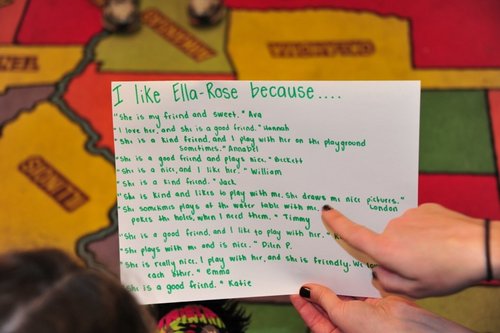 I like Ella-Rose because....
"She is my friend and sweet." Ava
"I love her, and she is a good friend." Hannah
"She is a kind friend, and I play with her on the playground
sometimes." Annabel
"She is a good friend and plays nice." Beckett
"She is a nice, and I like her." William
"She is a kind friend." Jack
"She is kind and likes to play with me. She draws me nice pictures."
London
"She sometimes plays at the water table with me.
pokes the holes, when I need them." Timmy
"She is a good friend, and I like to play with her."
"She plays with me and is nice." Dilen P.
"She is really nice. I play with her, and she is friendly. We
each other." Emma
"She is a good friend." Katie
OKLAHOMA